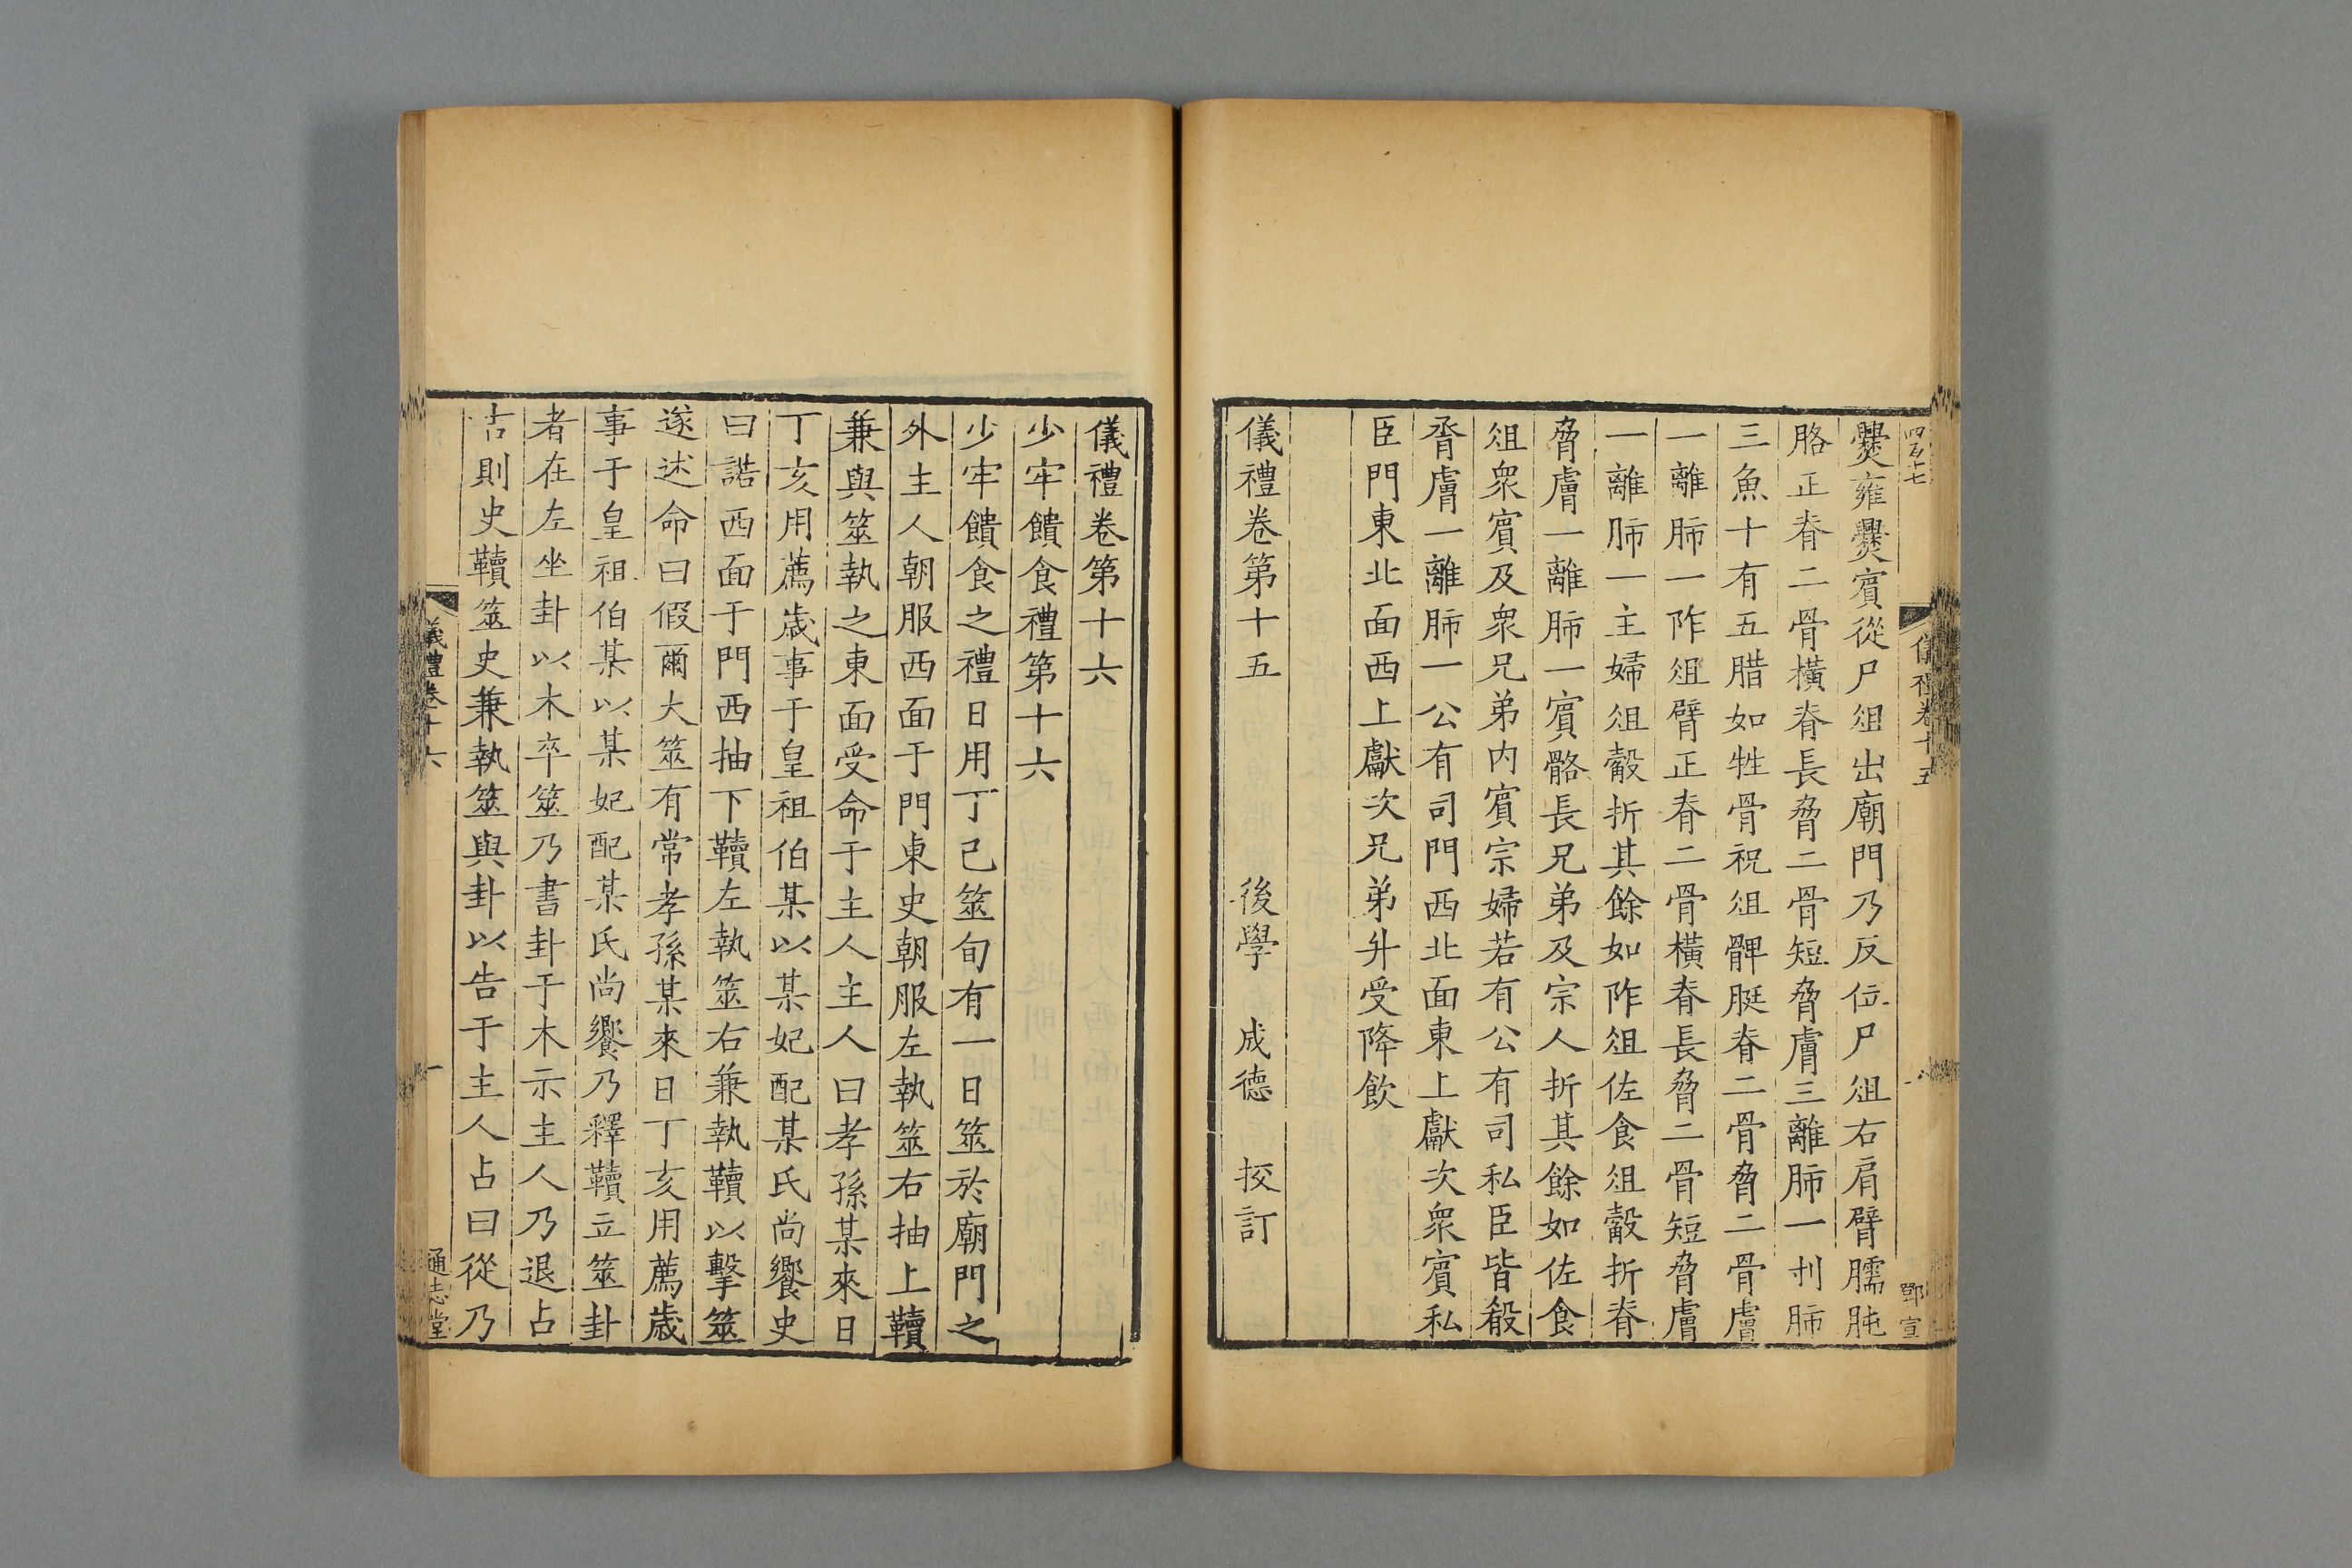 四百十七
儀禮卷十五
鄧宣
爨雍爨賓從尸俎出廟門乃反位尸俎右肩臂臑肫
胳正脊二骨橫脊長脅二骨短脅膚三離肺一刌肺
三魚十有五腊如牲骨祝俎髀脡脊二骨脅二骨膚
一離肺一阼俎臂正脊二骨橫脊長脅二骨短脅膚
一離肺一主婦俎觳折其餘如阼俎佐食俎觳折脊
脅膚一離肺一賓骼長兄弟及宗人折其餘如佐食
俎衆賓及衆兄弟内賓宗婦若有公有司私臣皆殽
脀膚一離肺一公有司門西北面東上獻次衆賓私
臣門東北面西上獻次兄弟升受降飲
儀禮卷第十五 後學 成德 挍訂
儀禮卷第十六
少牢饋食禮第十六
少牢饋食之禮日用丁己筮旬有一日筮於廟門之
外主人朝服西面于門東史朝服左執筮右抽上韇
兼與筮執之東面受命于主人主人曰孝孫某來日
丁亥用薦歲事于皇祖伯某以某妃配某氏尚饗史
曰諾西面于門西抽下韇左執筮右兼執韇以擊筮
遂述命曰假爾大筮有常孝孫某來日丁亥用薦歲
事于皇祖伯某以某妃配某氏尚饗乃釋韇立筮卦
者在左坐卦以木卒筮乃書卦于木示主人乃退占
吉則史韇筮史兼執筮與卦以告于主人占曰從乃
儀禮卷十六
一
通志堂